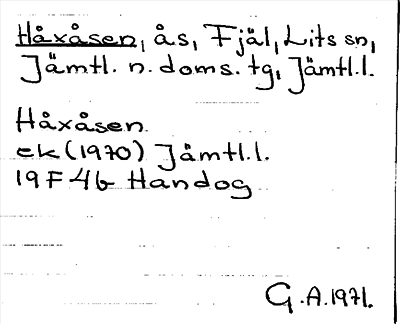 Håxåsen, ås, Fjäl, Lits sn,
Jämtl. n. doms. tg, Jämtl.l.
Håxåsen
ek (1970) Jämtl.l.
19F4b Handog
G.A.1971.